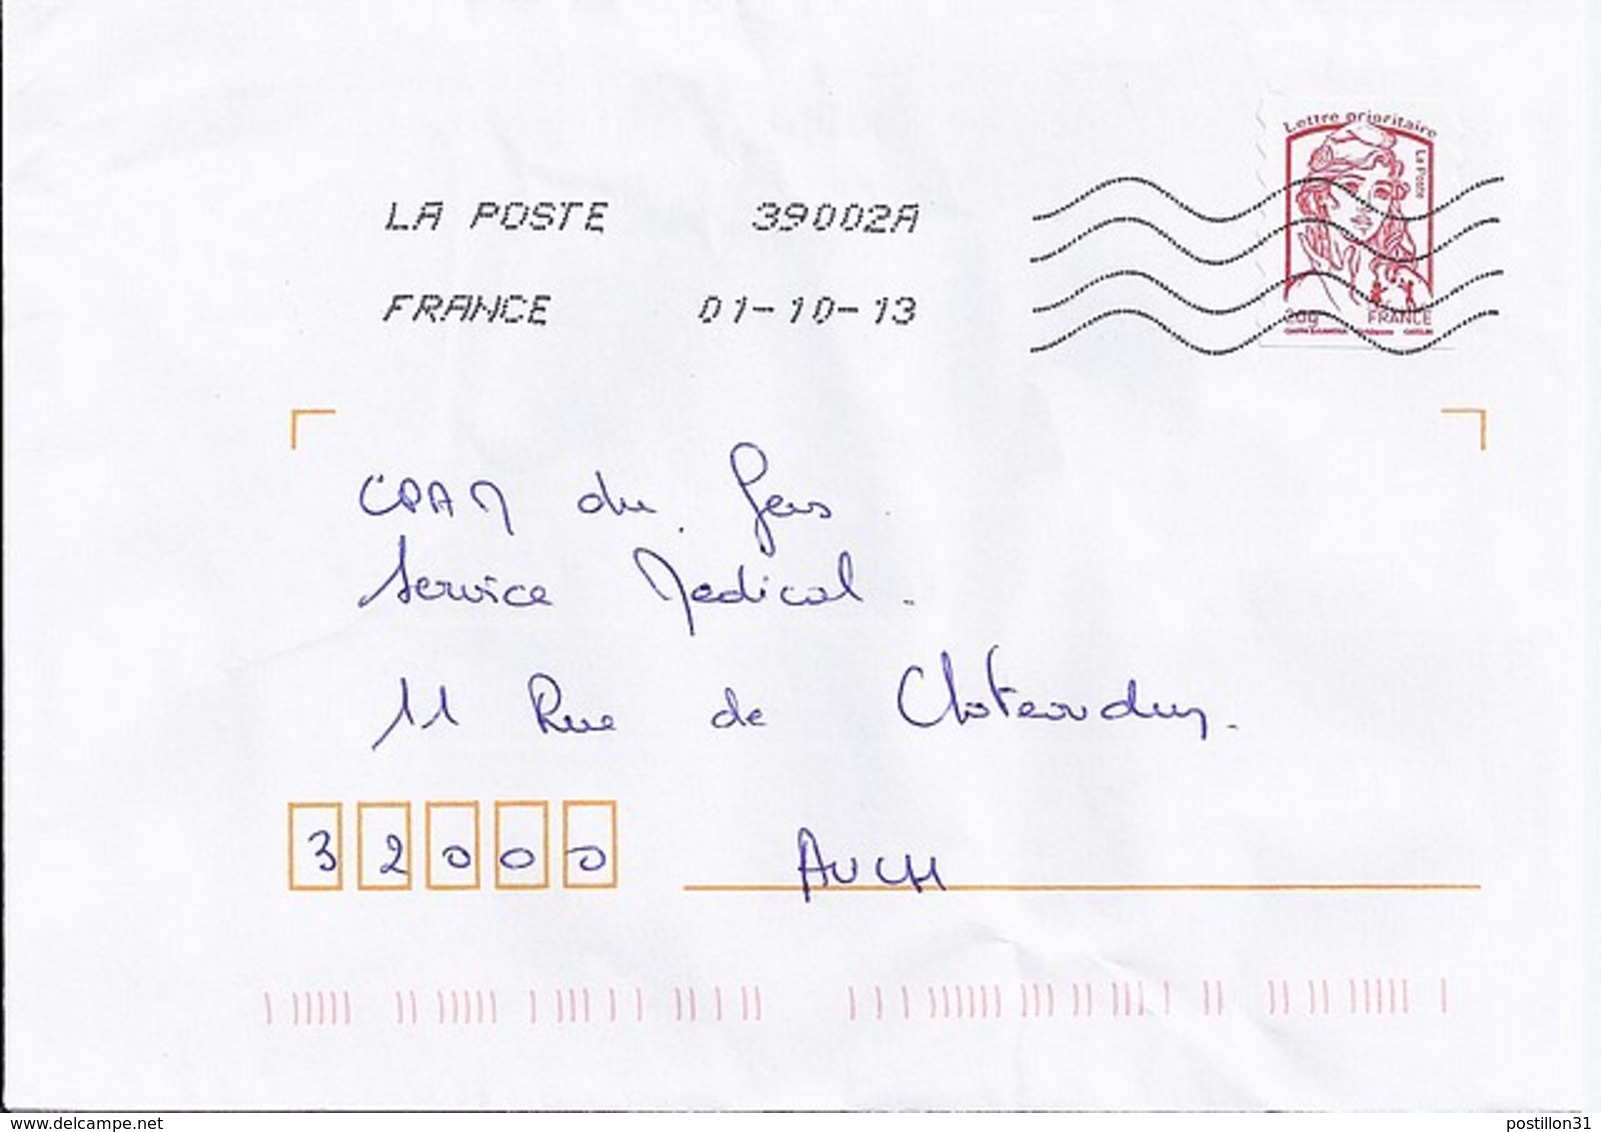 Lettre prioritaire
La Poste
LA POSTE 39002A
FRANCE 01-10-13
20g FRANCE
CPAM du Gers
Service Medical.
11 Rue de Chateaudun.
32000 AUCH
www.delcampe.net
postillon31